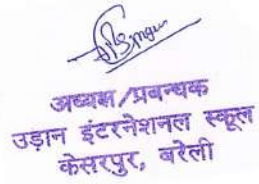 अध्यक्ष/प्रबन्धक
उड़ान इंटरनेशनल स्कूल
केसरपुर, बरेली